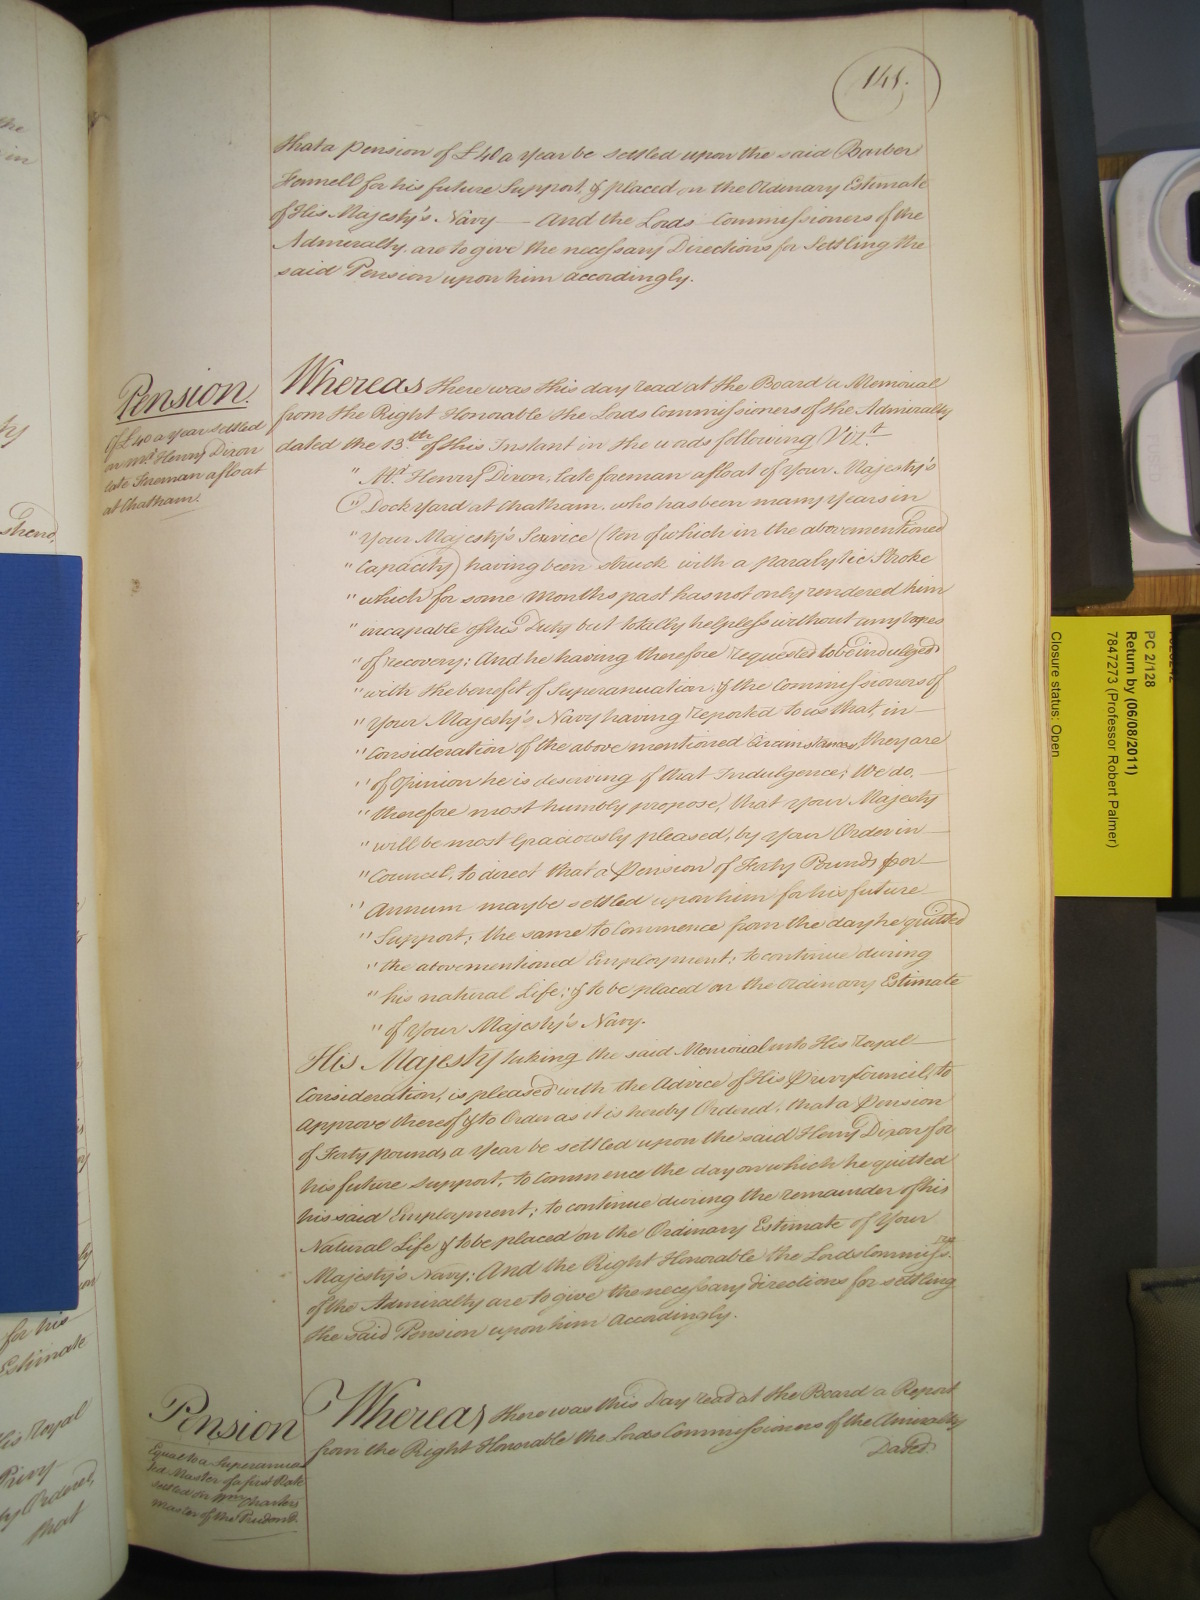 141.
that a Pension of £40 a Year be settled upon the said Barber
Fennell for his future Support, & placed on the Ordinary Estimate
of His Majesty's Navy — And the Lords Commissioners of the
Admiralty are to give the necessary Directions for Settling the
said Pension upon him accordingly.
Pension.
Of £40 a year settled
on Mr. Henry Dixon
late Foreman afloat
at Chatham.
Whereas there was this day read at the Board a Memorial
from the Right Honorable the Lords Commissioners of the Admiralty
dated the 13th of this Instant in the words following Vizt.
" Mr. Henry Dixon, late foreman afloat of Your Majesty's
" Dock Yard at Chatham, who has been many Years in
" Your Majesty's Service (ten of which in the abovementioned
" Capacity) having been struck with a paralytic Stroke
" which for some Months past has not only rendered him
" incapable of his Duty but totally helpless without any hopes
" of recovery; And he having therefore requested to be indulged
" with the benefit of Superanuation; & the Commissioners of
" Your Majesty's Navy having reported to us that, in
" Consideration of the above mentioned Circumstances, they are
" of Opinion he is deserving of that Indulgence; We do,
" therefore most humbly propose, that your Majesty
" will be most Graciously pleased, by your Order in
" Council, to direct that a Pension of Forty Pounds per
" Annum may be settled upon him for his future
" Support; the same to Commence from the day he quitted
" the abovementioned Employment; to continue during
" his natural Life; & to be placed on the Ordinary Estimate
" of Your Majesty's Navy.
His Majesty taking the said Memorial into His Royal
Consideration, is pleased with the Advice of His Privy Council, to
approve thereof & to Order as it is hereby Ordered, that a Pension
of Forty pounds a Year be settled upon the said Henry Dixon for
his future support, to Commence the day on which he quitted
his said Employment; to continue during the remainder of his
Natural Life & to be placed on the Ordinary Estimate of Your
Majesty's Navy: And the Right Honorable the Lords Commissrs.
of the Admiralty are to give the necessary directions for settling
the said Pension upon him Accordingly.
Pension
Equal to a Superannua
ted Master of a first Rate
settled on Wm. Charters
Master of the Prudent.
Whereas there was this Day read at the Board a Report
from the Right Honorable the Lords Commissioners of the Admiralty
Dated
the
in
for his
Estimate
His Royal
Privy
by Ordered,
that
PC 2/128
Return by (06/08/2011)
7847273 (Professor Robert Palmer)
Closure status: Open